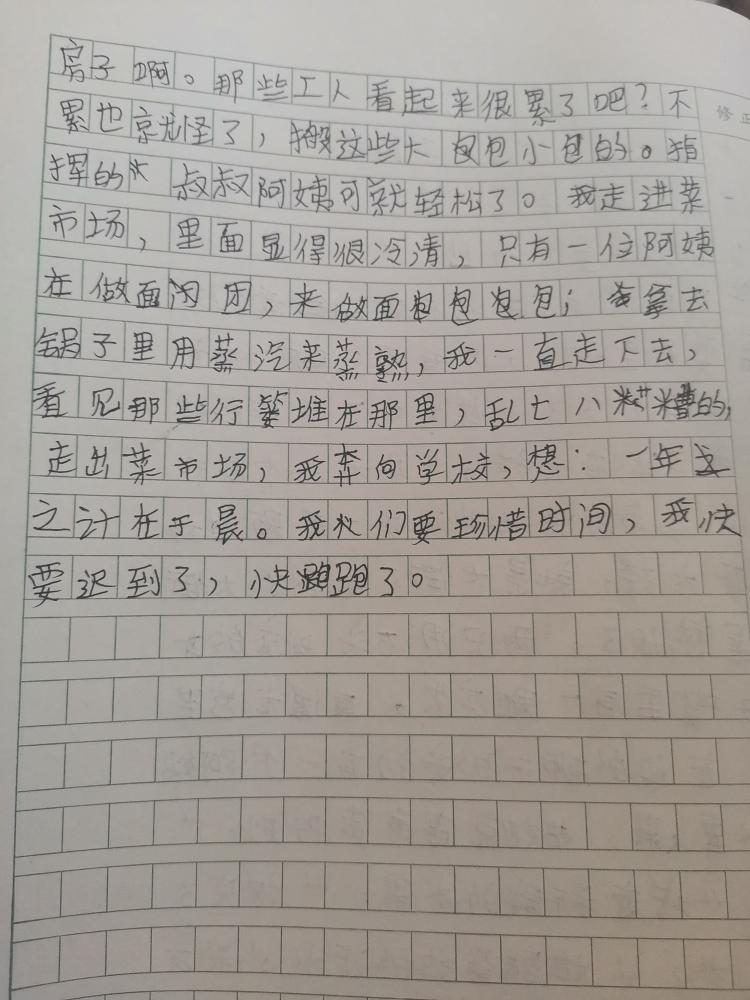 房子啊。那些工人看起来很累了吧？不
累也就怪了，搬这些大包包小包的。指
挥的 叔叔阿姨可就轻松了。我走进菜
市场，里面显得很冷清，只有一位阿姨
在做面团，来做面包包包；拿去
锅子里用蒸汽来蒸熟，我一直走下去，
看见那些行篓堆在那里，乱七八糟的，
走出菜市场，我奔向学校，想：一年
之计在于晨。我们要珍惜时间，我快
要迟到了，快跑了。
修正